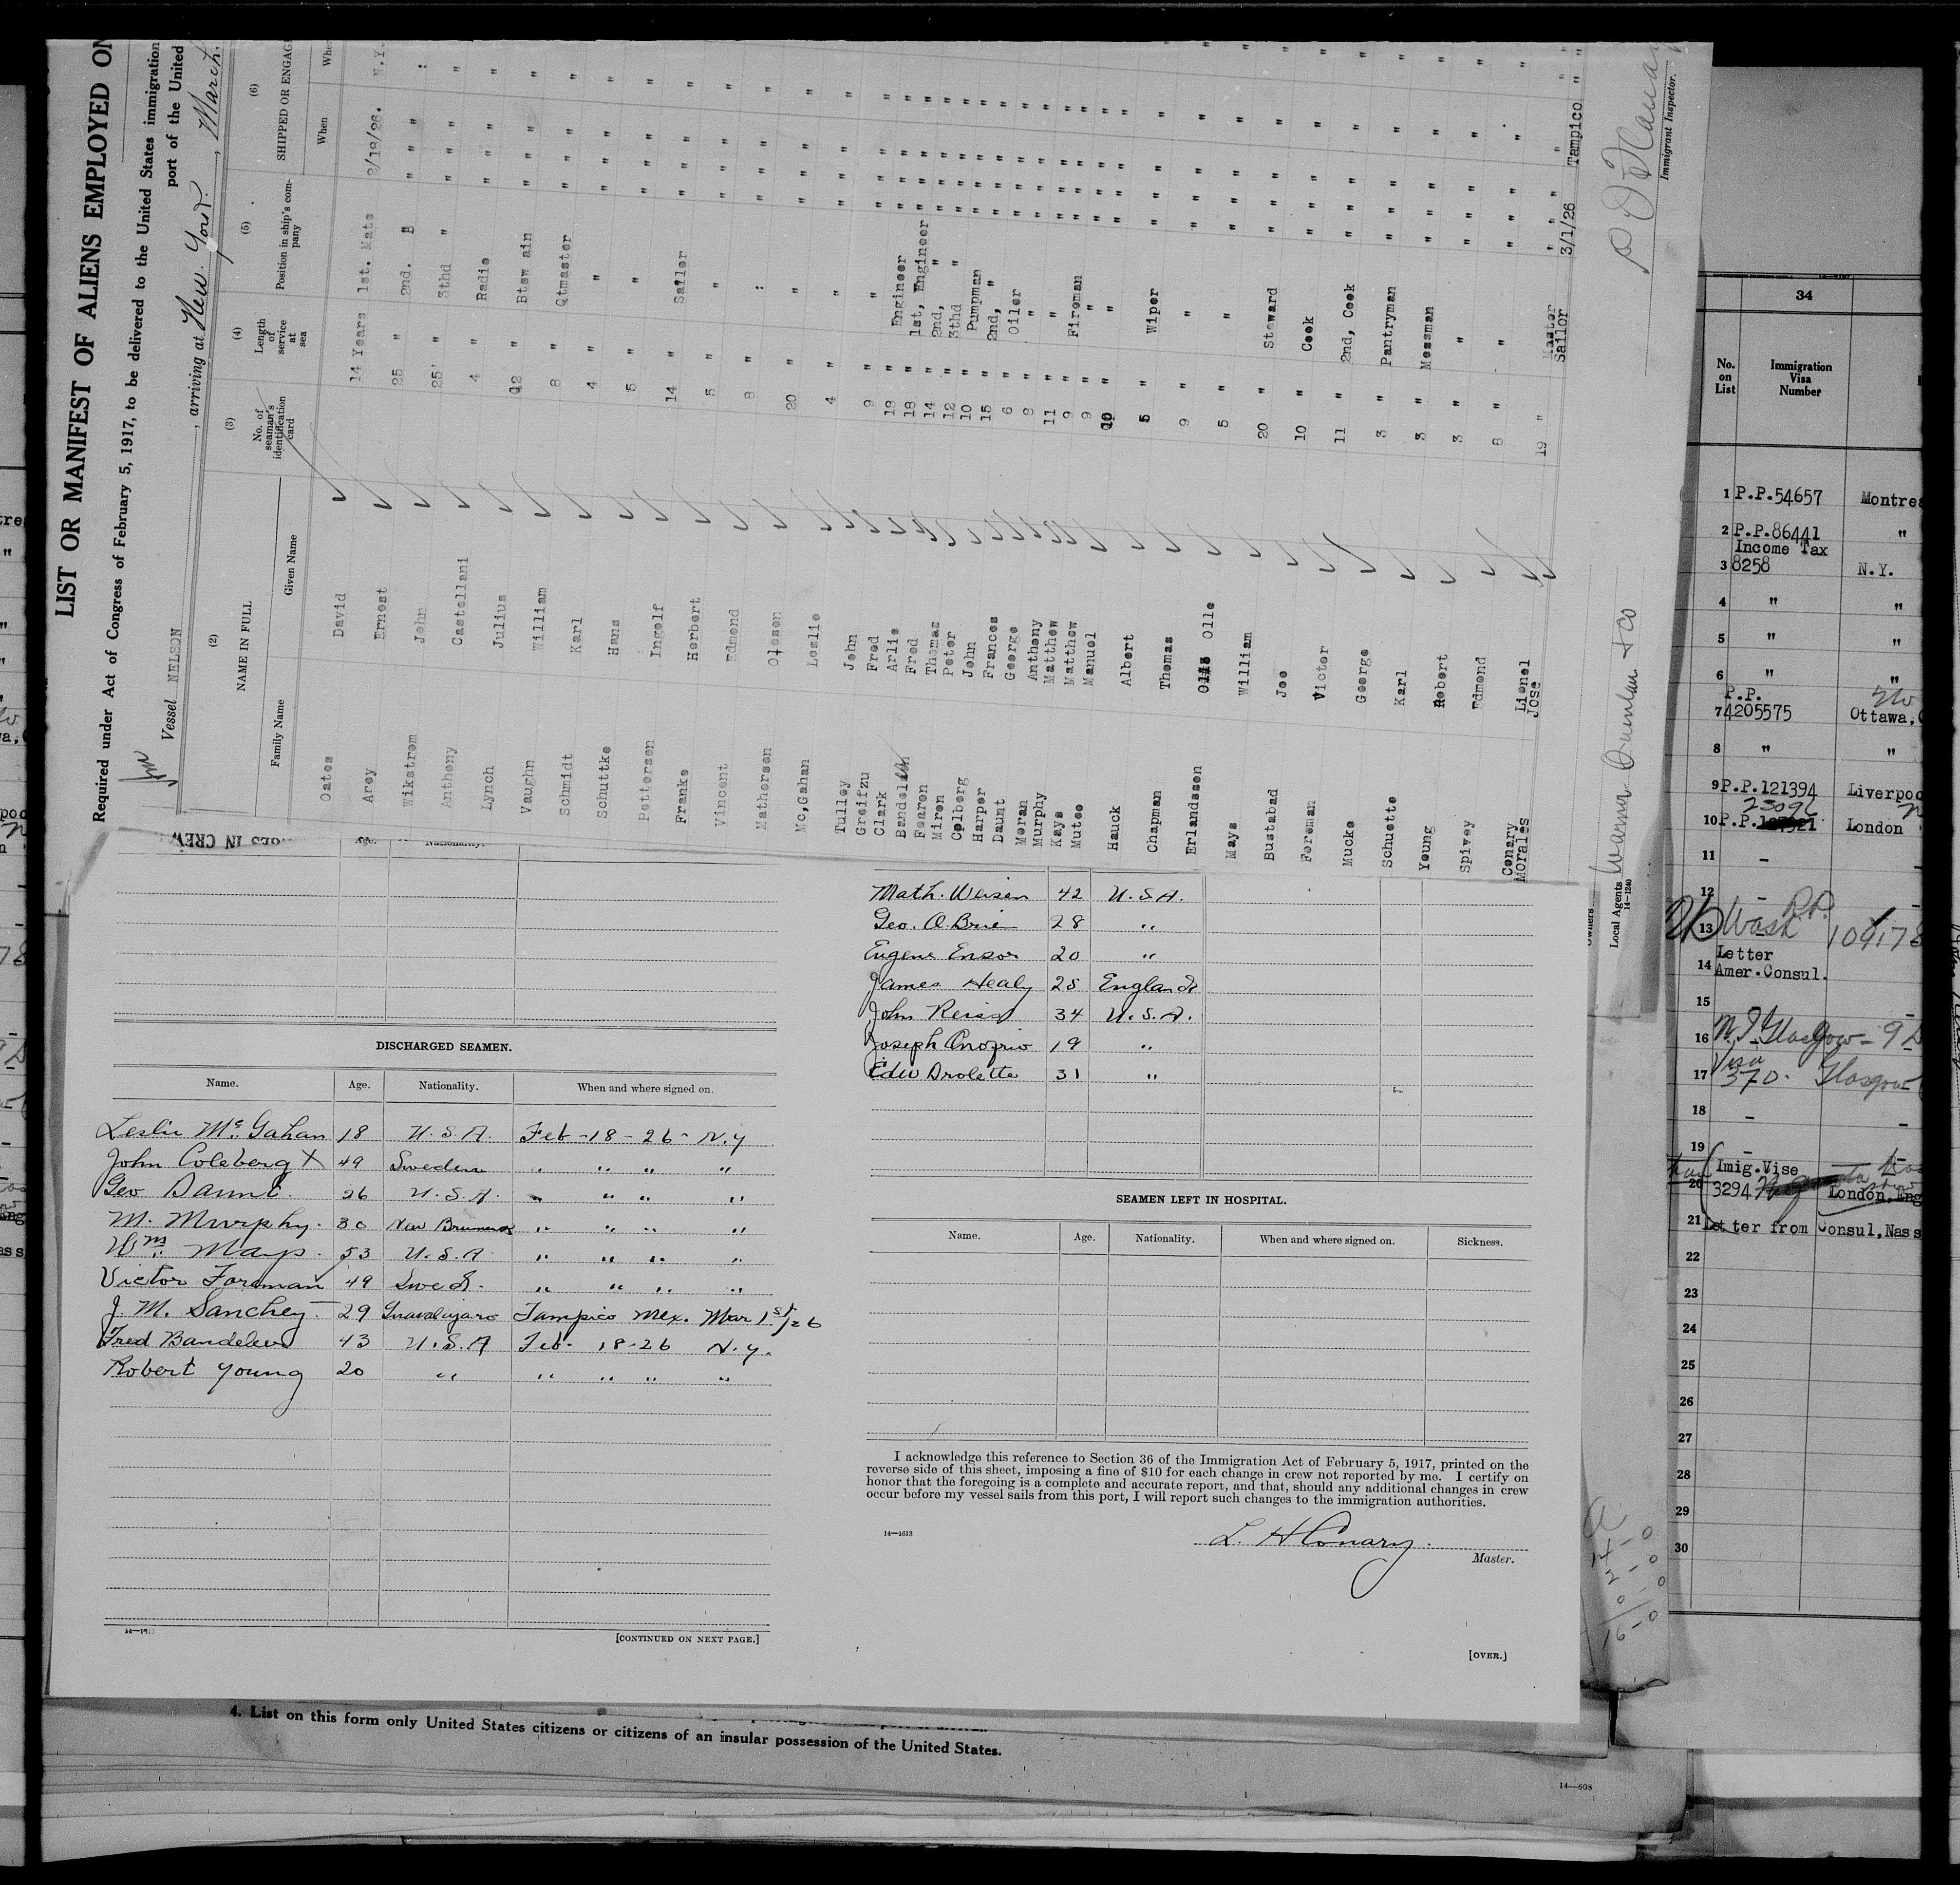 LIST OR MANIFEST OF ALIENS EMPLOYED ON
Required under Act of Congress of February 5, 1917, to be delivered to the United States immigration
port of the United
Vessel NELSON, arriving at New York, March
(2) (3) (4) (5) (6)
NAME IN FULL
Family Name Given Name
No. of seaman's identification card
Length of service at sea
Position in ship's company
SHIPPED OR ENGAG
When Whe
Oates David 14 Years 1st. Mate 2/18/26. N.Y.
Arey Ernest 25 " 2nd. " " "
Wikstrom John 25 " 3thd " " " "
Anthony Castellani 4 " Radio " " "
Lynch Julius 12 " Btsw ain " " "
Vaughn William 8 " Qtmaster " " "
Schmidt Karl 4 " " " " "
Schuttke Hans 5 " " " " "
Pettersen Ingolf 14 " Sailor " " "
Franke Herbert 5 " " " " "
Vincent Edmond 8 " " " "
Mathersen Olesen 20 " " " " "
Mc,Gahan Leslie 4 " " " " "
Tulley John 9 " " " " "
Greifzu Fred 18 " Engineer " " "
Clark Arlie 18 " 1st, Engineer " " "
Bandel Fred 14 " 2nd, " " " "
Fearon Thomas 12 " 3thd " " " "
Miren Peter 10 " Pumpman " " "
Colberg John 15 " 2nd, " " " "
Harper Frances 6 " Oiler " " "
Daunt George 8 " " " " "
Moran Anthony 11 " " " " "
Murphy Matthew 9 " Fireman " " "
Kays Matthew 9 " " " " "
Mutee Manuel 10 " " " " "
Hauck Albert 5 " Wiper " " "
Chapman Thomas 9 " " " " "
Erlandssen Olle 5 " " " " "
Mays William 20 " Steward " " "
Bustabad Joe 10 " Cook " " "
Foreman Victor 11 " 2nd, Cook " " "
Mucke George 3 " Pantryman " " "
Schuette Karl 3 " Messman " " "
Young Robert 3 " " " " "
Spivey Edmond 8 " " " " "
Conary Lionel 19 " Master " " "
Morales Jose Sailor 3/1/26 Tampico "
Owners
Local Agents
14—1240
Immigrant Inspector.
GES IN CREW
Nationality.
DISCHARGED SEAMEN.
Name. Age. Nationality. When and where signed on.
Leslie Mc. Gahan 18 U.S.A. Feb-18-26- N.Y
John Coleberg X 49 Sweden " " " "
Geo Daunt. 26 U.S.A. " " " "
M. Murphy. 30 New Brunswick " " " "
Wm. Mays. 53 U.S.A. " " " "
Victor Foreman 49 Swed. " " " "
J. M. Sanchez 29 Tampico Mex. Mar 1st/26
Fred Bandeleer 43 U.S.A Feb- 18-26 N.y.
Robert Young 20 " " " " "
14—1613
[CONTINUED ON NEXT PAGE.]
Math. Weisen 42 U.S.A.
Geo. O.Brien 28 "
Eugene Ensor 20 "
James Healy 25 England
John Reiss 34 U.S.A.
Joseph Onofrio 19 "
Edw Drolette 31 "
SEAMEN LEFT IN HOSPITAL.
Name. Age. Nationality. When and where signed on. Sickness.
I acknowledge this reference to Section 36 of the Immigration Act of February 5, 1917, printed on the
reverse side of this sheet, imposing a fine of $10 for each change in crew not reported by me. I certify on
honor that the foregoing is a complete and accurate report, and that, should any additional changes in crew
occur before my vessel sails from this port, I will report such changes to the immigration authorities.
14—1613
L. H Conary.
Master.
[OVER.]
4. List on this form only United States citizens or citizens of an insular possession of the United States.
14—608
34
No. on List
Immigration Visa Number
1 P.P.54657 Montre
2 P.P.86441 "
Income Tax
3 8258 N.Y.
4 " "
5 " "
6 " "
P.P.
7 4205575 Ottawa,
8 " "
9 P.P.121394 Liverpoo
10 P.P. London
11 -
12 -
13 Wash P.P. 109178
14 Letter
Amer.Consul.
15
16 Glasgow
17 Visa 370. Glasgow
18 -
19 -
Imig.Vise
20 3294 London,Eng
21 Letter from Consul,Nass
22
23
24
25
26
27
28
29
30